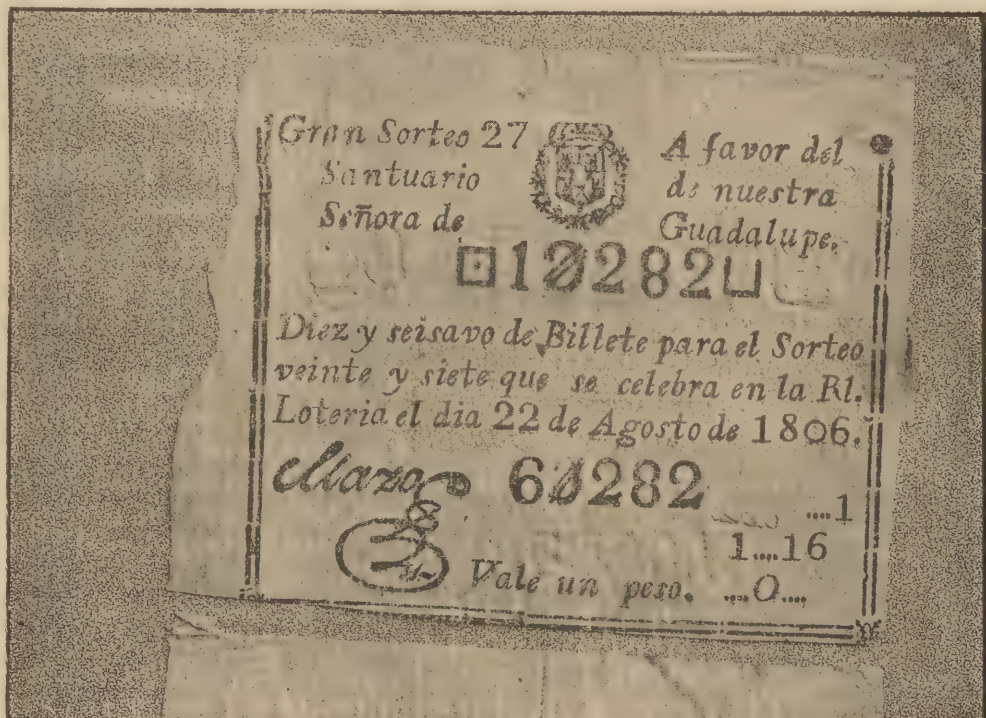 Gran Sorteo 27 A favor del
Santuario de nuestra
Señora de Guadalupe.
10282
Diez y seisavo de Billete para el Sorteo
veinte y siete que se celebra en la Rl.
Loteria el dia 22 de Agosto de 1806.
Mazo 60282 ....1
1....16
Vale un peso. ....0....